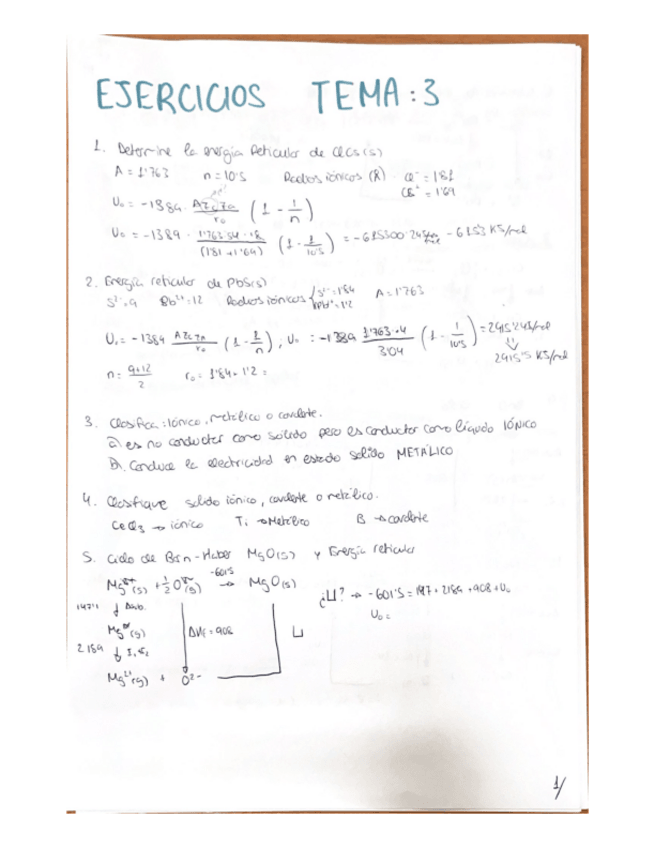 EJERCICIOS TEMA: 3
1. Determine la energia Reticular de ClCs(s)
A = 1'763 n = 10'5 Radios iónicos (Å) Cl⁻ = 1'81
Cs⁺ = 1'69
U₀ = -1389 · (1 - 1/n)
U₀ = -1389 · (1 - 1/10'5) = - 6153 KJ/mol
(1'81 + 1'69)
2. Energia reticular de PbS(s)
S²⁻ = 9 Pb²⁺ = 12 Radios iónicos { S²⁻ = 1'84 A = 1'763
Pb²⁺ = 1'2
U₀ = -1389 (1 - 1/n) ; U₀ = -1389 1'763·4 / 3'04 (1 - 1/10'5) = 
2915'5 KJ/mol
n = 9+12 / 2 r₀ = 1'84 + 1'2 =
3. Clasifica: Iónico, metálico o covalente.
a) es no conductor como sólido pero es conductor como líquido IÓNICO
b) Conduce la electricidad en estado sólido METÁLICO
4. Clasifique sólido iónico, covalente o metálico.
CeCl₃ → iónico Ti → Metálico B → covalente
5. Ciclo de Born-Haber MgO(s) y Energía reticular
-601'5
Mg(s) + 1/2 O(g) → MgO(s)
¿U? → -601'5 = 147 + 2189 + 908 + U₀
U₀ =
147'1 ↓ ΔHsub.
Mg(g) ΔHf = 908 U
2189 ↓ I₁, I₂
Mg²⁺(g) + O²⁻
1/